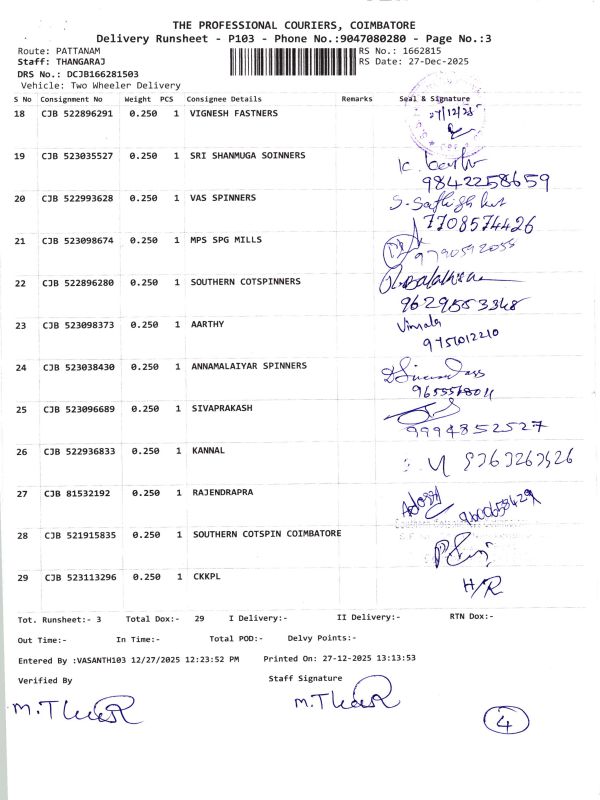 THE PROFESSIONAL COURIERS, COIMBATORE
Delivery Runsheet - P103 - Phone No.:9047080280 - Page No.:3
Route: PATTANAM RS No.: 1662815
Staff: THANGARAJ RS Date: 27-Dec-2025
DRS No.: DCJB166281503
Vehicle: Two Wheeler Delivery
S No Consignment No Weight PCS Consignee Details Remarks Seal & Signature
18 CJB 522896291 0.250 1 VIGNESH FASTNERS 27/12/25
19 CJB 523035527 0.250 1 SRI SHANMUGA SOINNERS
9842258659
20 CJB 522993628 0.250 1 VAS SPINNERS
7708574426
21 CJB 523098674 0.250 1 MPS SPG MILLS
9790592055
22 CJB 522896280 0.250 1 SOUTHERN COTSPINNERS
9629553348
23 CJB 523098373 0.250 1 AARTHY Vimala
9751012210
24 CJB 523038430 0.250 1 ANNAMALAIYAR SPINNERS
25 CJB 523096689 0.250 1 SIVAPRAKASH
9994852527
26 CJB 522936833 0.250 1 KANNAL
27 CJB 81532192 0.250 1 RAJENDRAPRA
9600658429
28 CJB 521915835 0.250 1 SOUTHERN COTSPIN COIMBATORE
29 CJB 523113296 0.250 1 CKKPL H/R
Tot. Runsheet:- 3 Total Dox:- 29 I Delivery:- II Delivery:- RTN Dox:-
Out Time:- In Time:- Total POD:- Delvy Points:-
Entered By :VASANTH103 12/27/2025 12:23:52 PM Printed On: 27-12-2025 13:13:53
Verified By Staff Signature
4